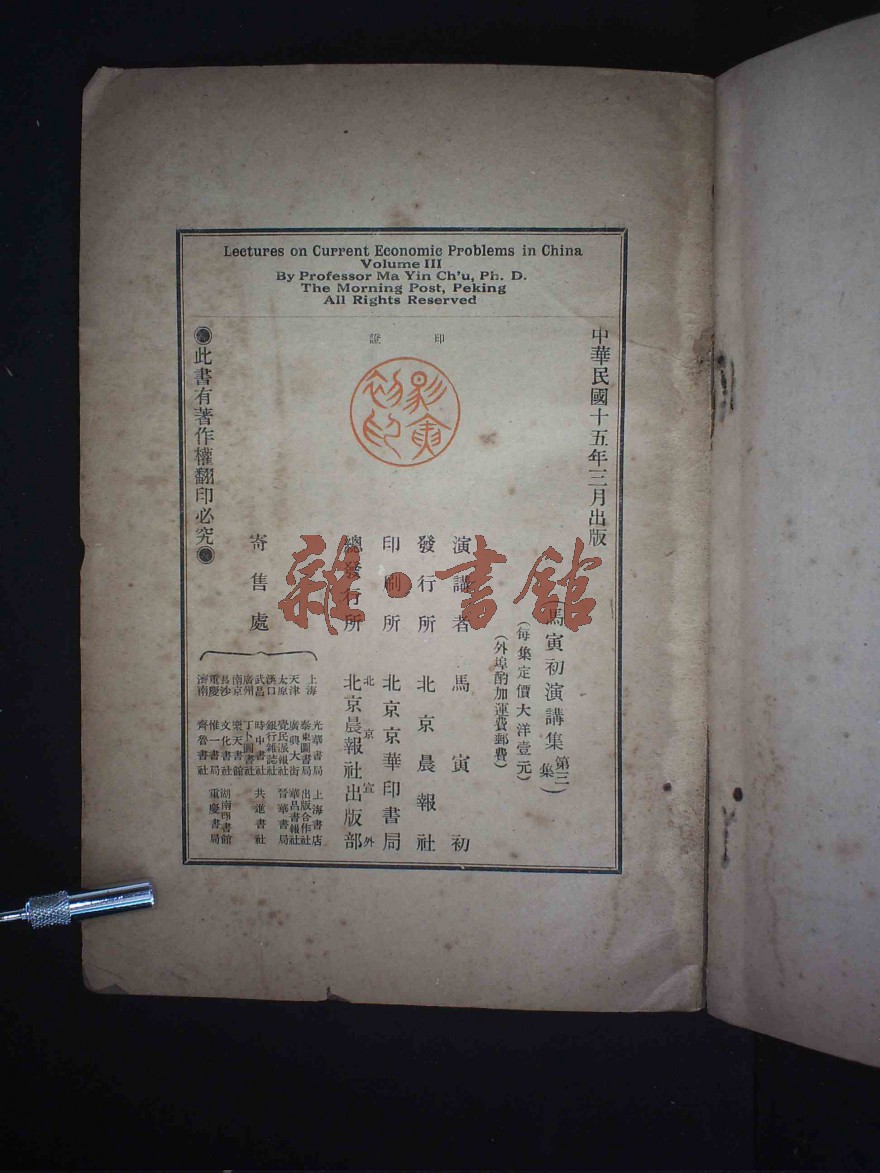 Lectures on Current Economic Problems in China
Volume III
By Professor Ma Yin Ch'u, Ph. D.
The Morning Post, Peking
All Rights Reserved
中華民國十五年三月出版
(馬寅初演講集第三集)
(每集定價大洋壹元)
(外埠酌加運費郵費)
印證
演講者 馬寅初
發行所 北京晨報社
印刷所 北京京華印書局
總發行所 北京宣外 北京晨報社出版部
寄售處
上海 光華書局 上海書店
泰東圖書局 出版合作社
天津
太原 覺民派報社 晉華書局
漢口 銀行雜誌社
武昌 時中書社 共進書社
廣州 丁卜圖書社
南京 樂天書館
長沙 文化書社 湖南圖書館
重慶 惟一書局 重慶書局
濟南 齊魯書社
此書有著作權翻印必究
雜·書館